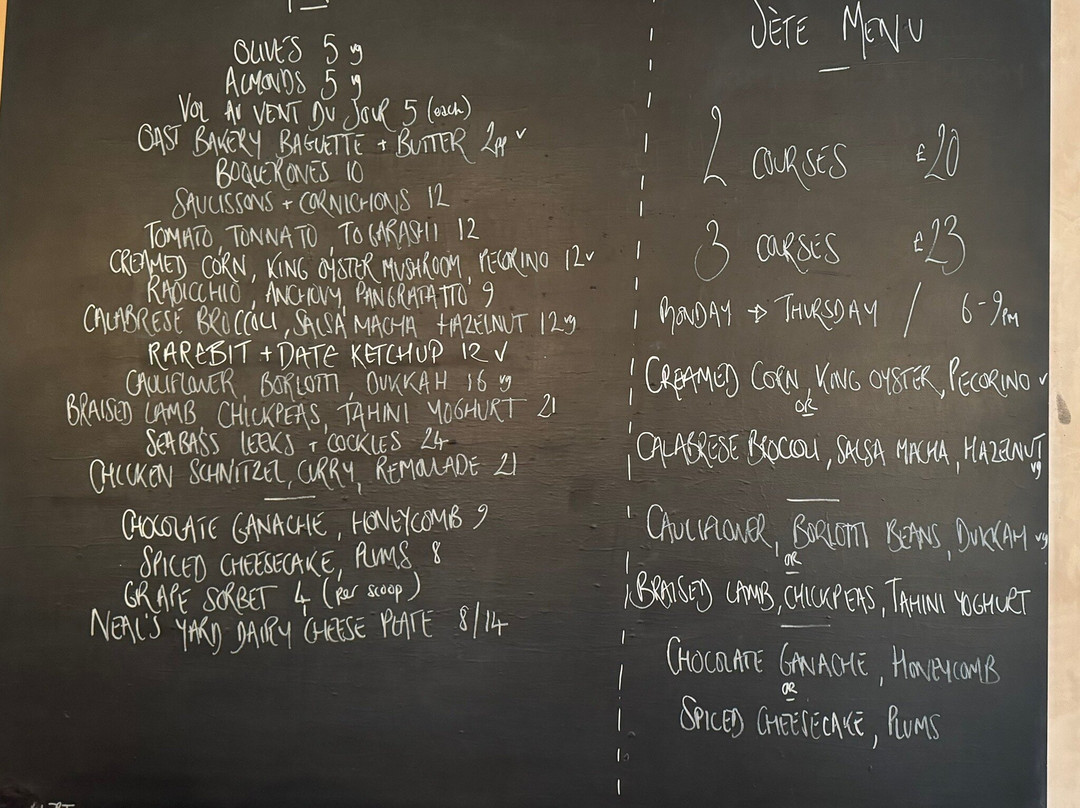 OLIVES 5 vg
ALMONDS 5 vg
VOL AU VENT DU JOUR 5 (each)
OAST BAKERY BAGUETTE + BUTTER 2pp v
BOQUERONES 10
SAUCISSONS + CORNICHONS 12
TOMATO, TONNATO, TOGARASHI 12
CREAMED CORN, KING OYSTER MUSHROOM, PECORINO 12 v
RADICCHIO, ANCHOVY, PANGRATATTO 9
CALABRESE BROCCOLI, SALSA MACHA + HAZELNUT 12 vg
RAREBIT + DATE KETCHUP 12 v
CAULIFLOWER, BORLOTTI, DUKKAH 16 vg
BRAISED LAMB, CHICKPEAS, TAHINI YOGHURT 21
SEABASS LEEKS + COCKLES 24
CHICKEN SCHNITZEL, CURRY, REMOULADE 21
CHOCOLATE GANACHE, HONEYCOMB 9
SPICED CHEESECAKE, PLUMS 8
GRAPE SORBET 4 (per scoop)
NEAL'S YARD DAIRY CHEESE PLATE 8/14
SÈTE MENU
2 COURSES £20
3 COURSES £23
MONDAY → THURSDAY / 6-9PM
CREAMED CORN, KING OYSTER, PECORINO v
OR
CALABRESE BROCCOLI, SALSA MACHA, HAZELNUT vg
CAULIFLOWER, BORLOTTI BEANS, DUKKAH vg
OR
BRAISED LAMB, CHICKPEAS, TAHINI YOGHURT
CHOCOLATE GANACHE, HONEYCOMB
OR
SPICED CHEESECAKE, PLUMS